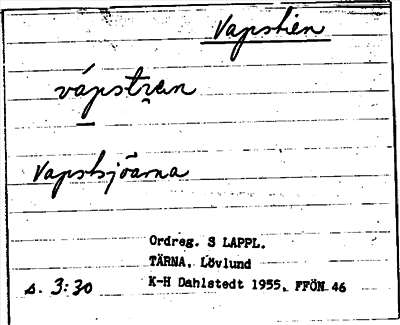 Vapstien
vápstręn
Vapstsjöarna
Ordreg. S LAPPL.
TÄRNA, Lövlund
s. 3:30 K-H Dahlstedt 1955. FFÖN 46